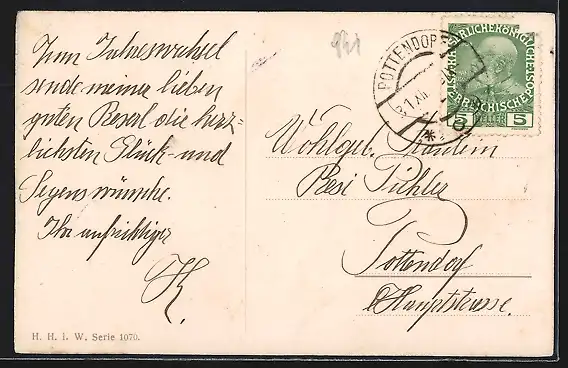 Zum Jahreswechsel
sende meiner lieben
guten Reserl die herz-
lichsten Glück- und
Segenswünsche.
Ihr aufrichtiger
K.
H. H. i. W. Serie 1070.
941
POTTENDORF
KAISERLICHE KÖNIGLICHE
ÖSTERREICHISCHE POST
5 HELLER 5
Wohlgeb. Fräulein
Resi Pichler
Pottendorf
Hauptstrasse.